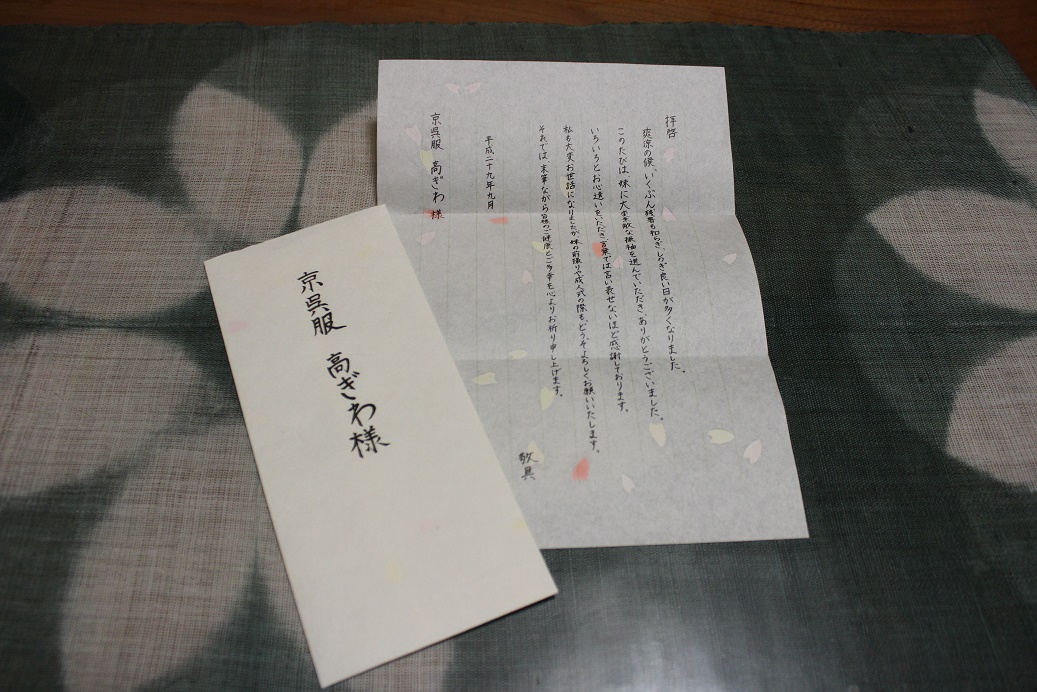 拝啓
爽涼の候、いくぶん残暑も和らぎ、しのぎ良い日が多くなりました。
このたびは、妹に大変素敵な振袖を選んでいただき、ありがとうございました。
いろいろとお心遣いをいただき、言葉では言い表せないほど感謝しております。
私も大変お世話になりましたが、妹の前撮りや成人式の際も、どうぞよろしくお願いいたします。
それでは、末筆ながら皆様のご健康とご多幸を心よりお祈り申し上げます。
敬具
平成二十九年九月
京呉服 高ぎわ 様
京呉服 高ぎわ様